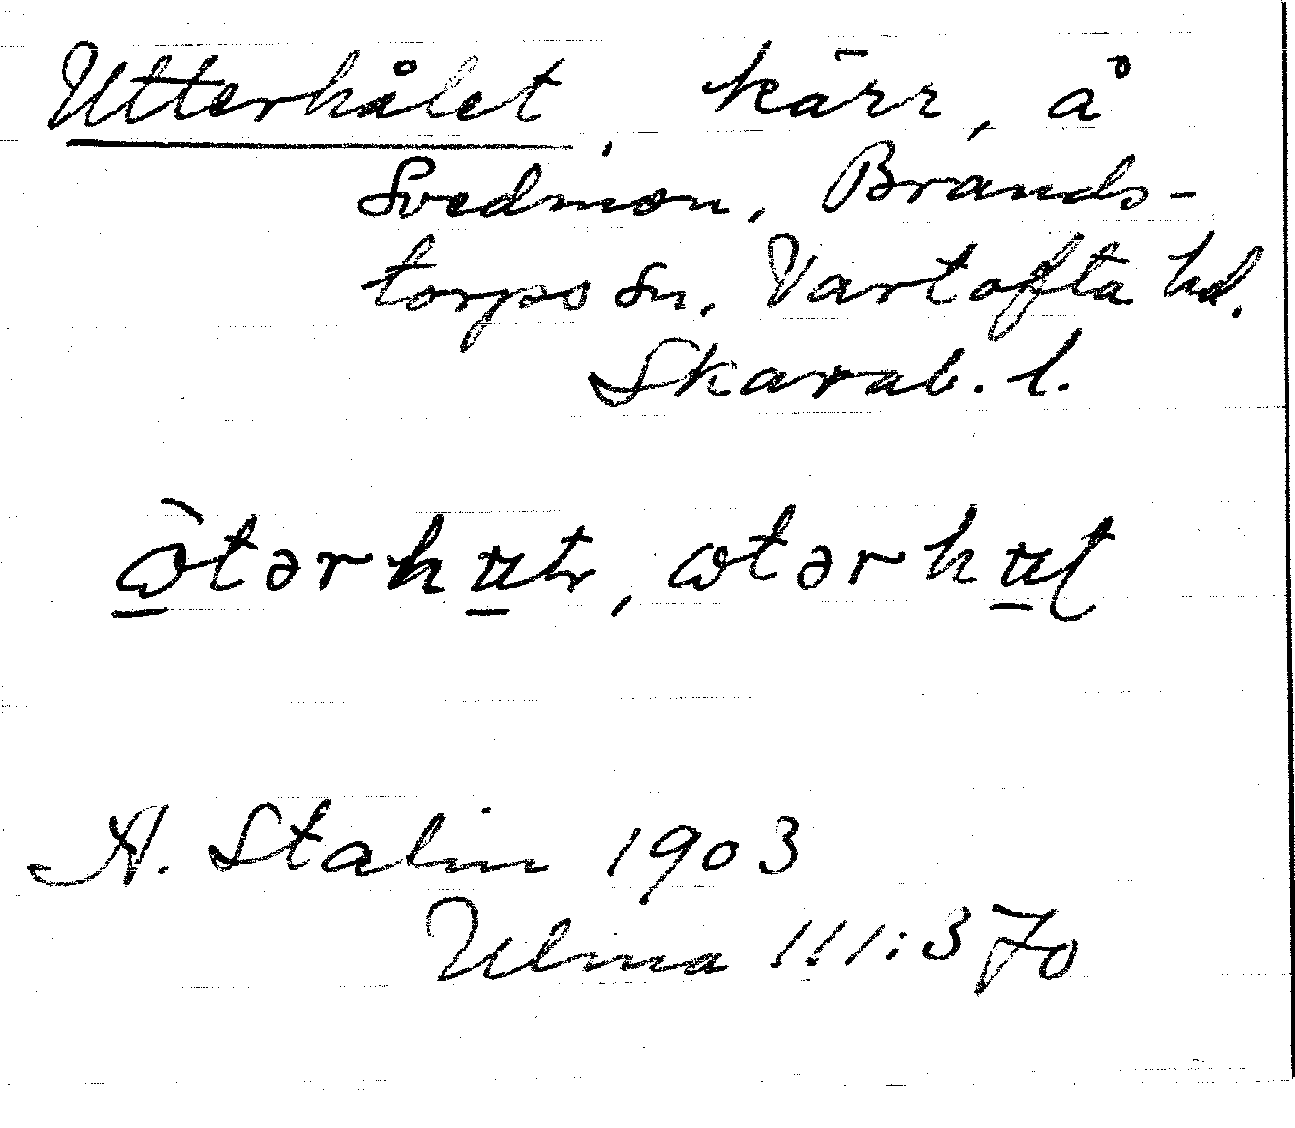 Utterhålet, kärr, å
Svedmon, Brands-
torps sn, Vartofta hd.
Skarab. l.
A. Stalin 1903
Ulma 111:370